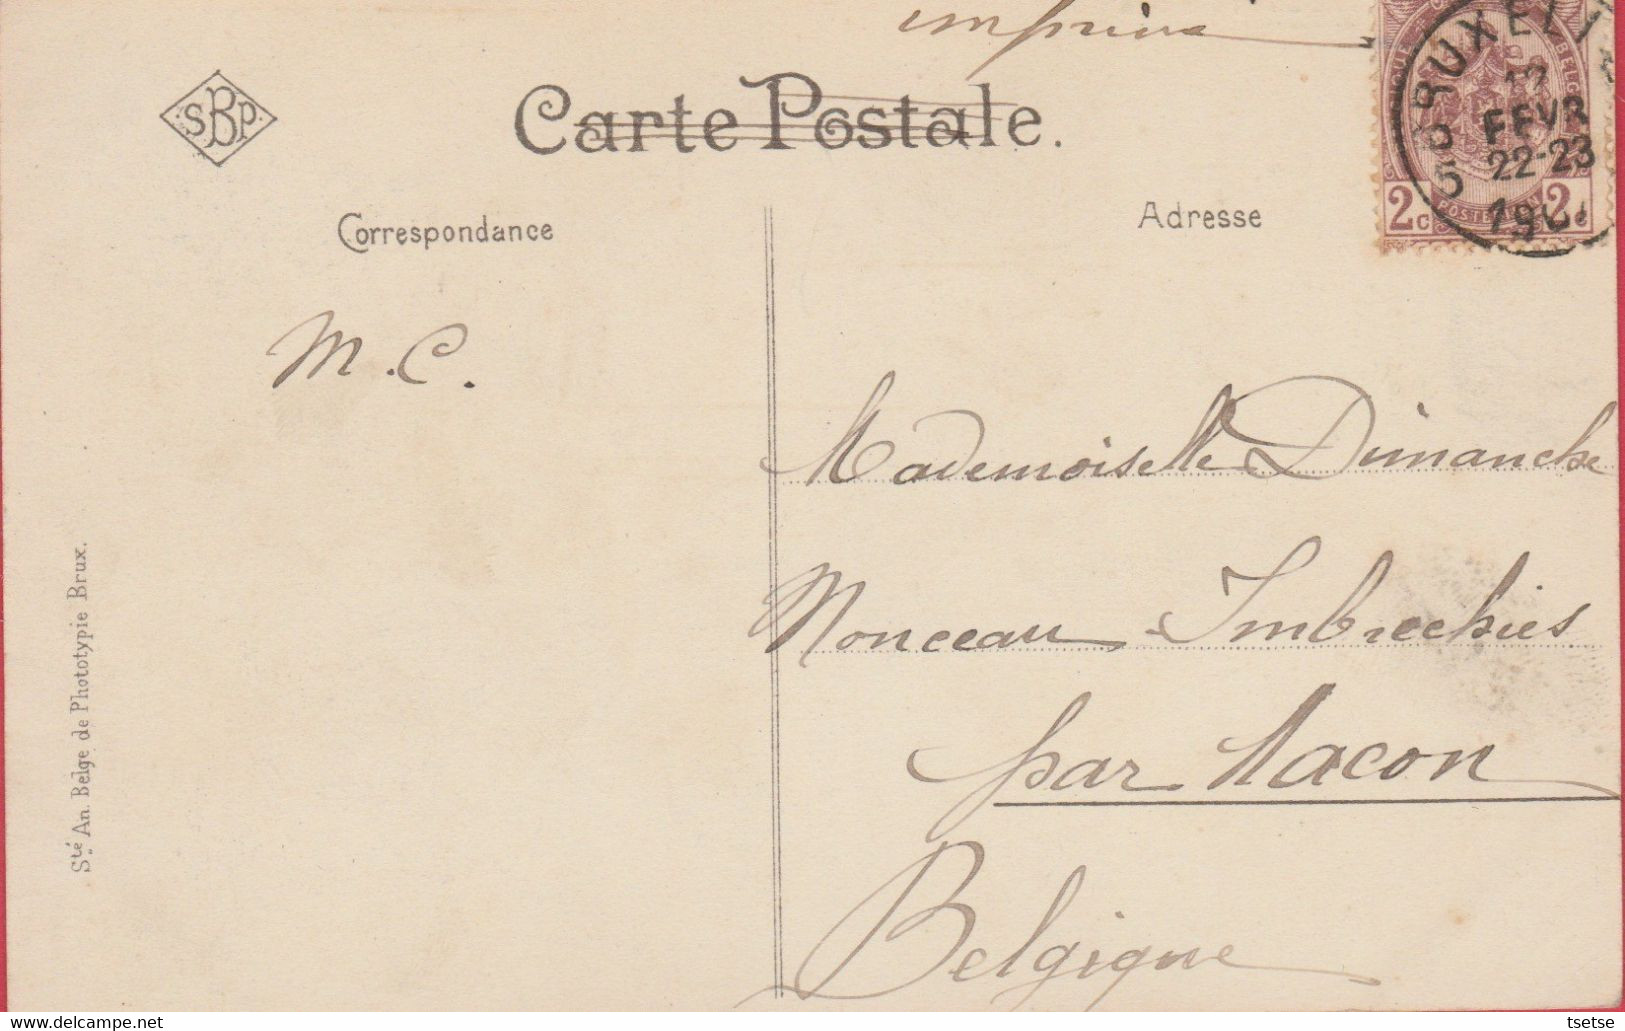 imprimé
SBP
Carte Postale.
BRUXELL
12
FEVR
22-23
BELGI
2c POSTE 2c
Correspondance
Adresse
M. C.
Mademoiselle Dimanche
Monceau-Imbrechies
par Macon
Belgique
Sté An. Belge de Phototypie Brux.
tsetse